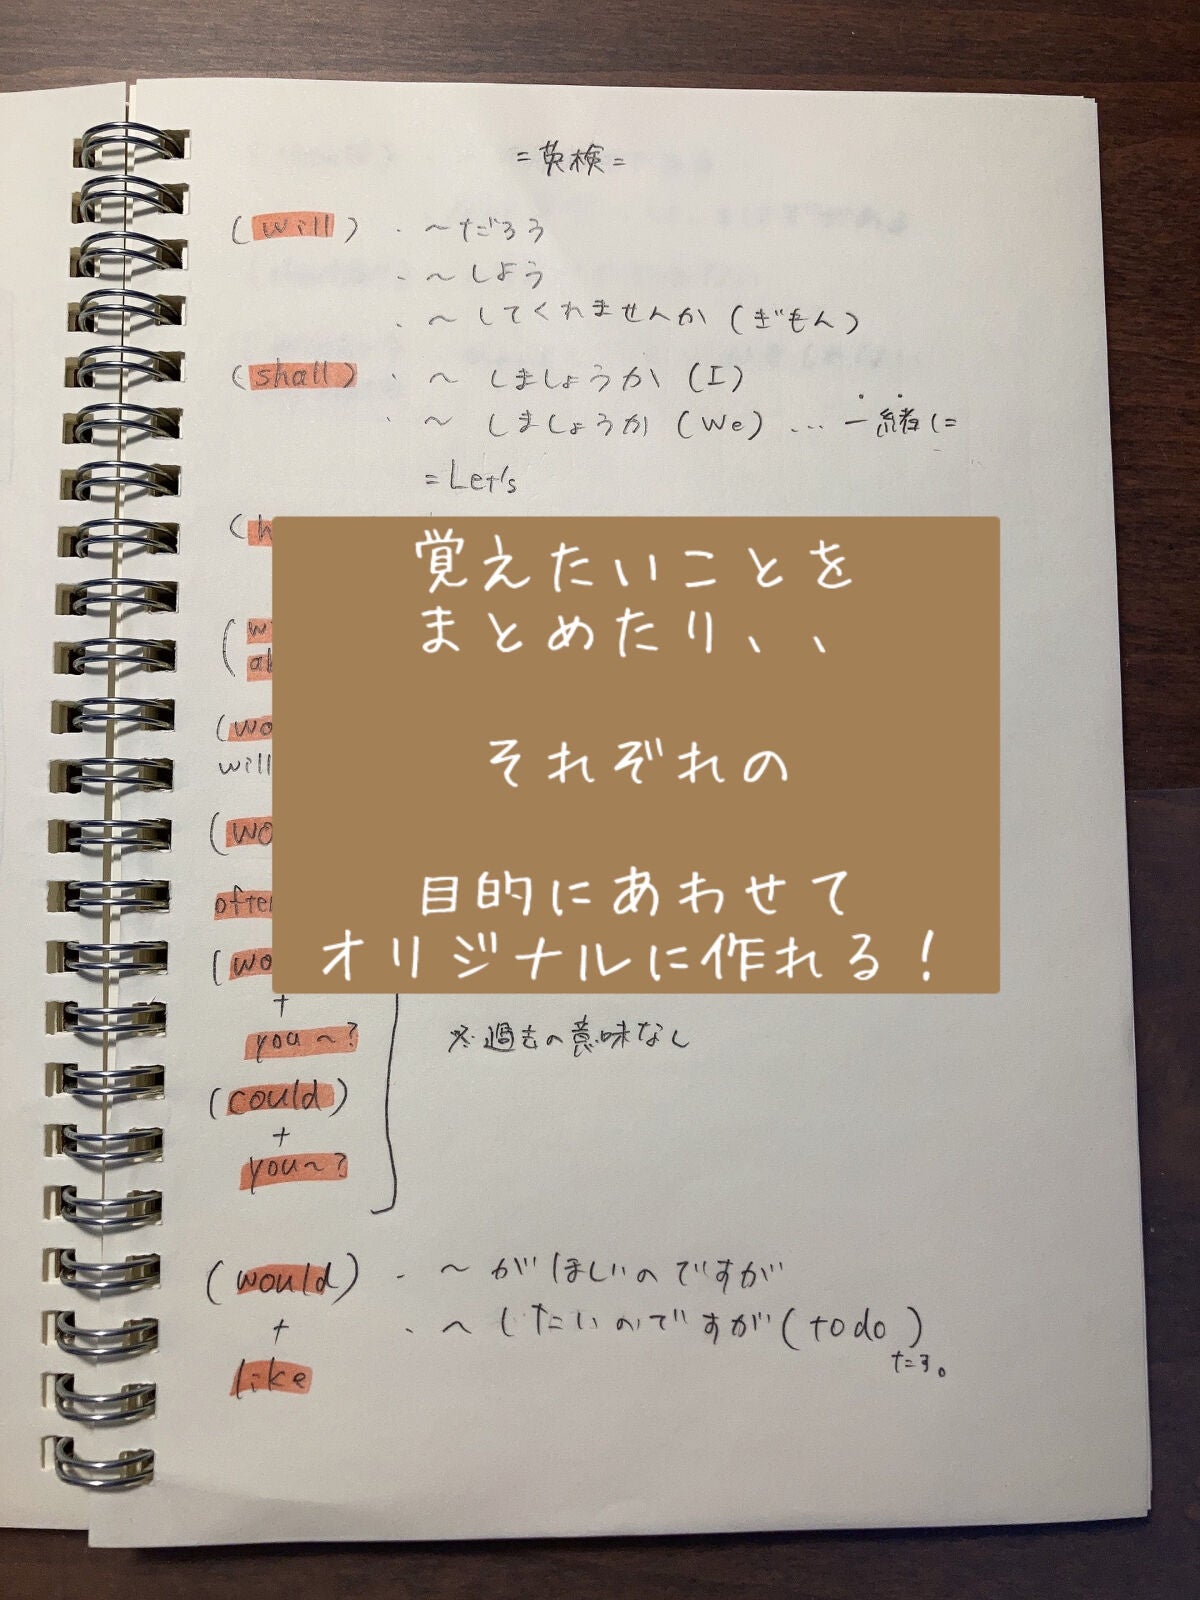 =英検=
(will) ・ ～だろう
・ ～しよう
・ ～してくれませんか (ぎもん)
(shall) ・ ～しましょうか (I)
・ ～しましょうか (We) … 一緒に
= Let's
覚えたいことを
まとめたり、、
それぞれの
目的にあわせて
オリジナルに作れる！
will
+
you～?
※過去の意味なし
(could)
+
you～?
(would) ・ ～がほしいのですが
+ ・ ～したいのですが (to do)
たす。
like